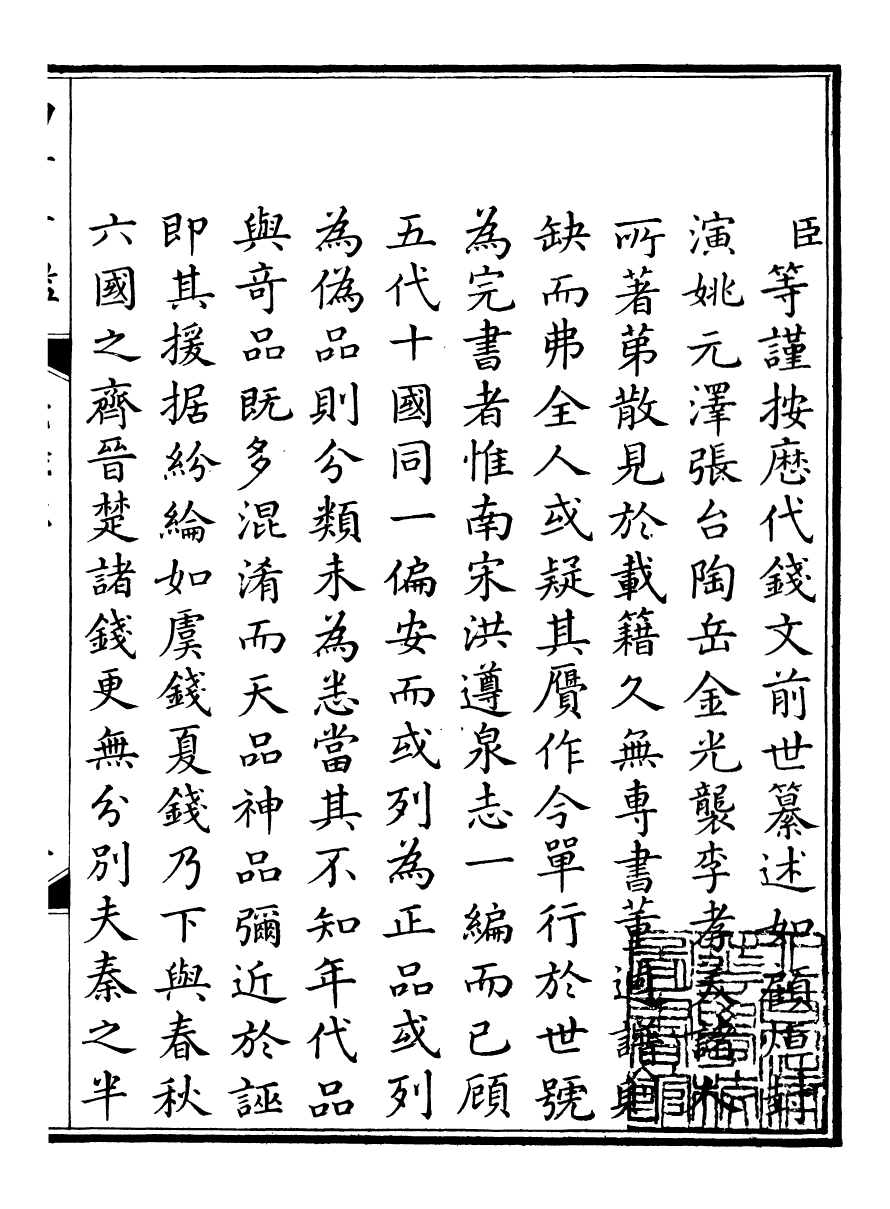 臣等謹按歴代錢文前世纂述如顧烜封
演姚元澤張台陶岳金光襲李孝美諸
所著苐散見於載籍久無専書董逌譜
缺而弗全人或疑其贋作今單行於世號
為完書者惟南宋洪遵泉志一編而已顧
五代十國同一偏安而或列為正品或列
為偽品則分類未為悉當其不知年代品
與竒品既多混淆而天品神品彌近於誣
即其援据紛綸如虞錢夏錢乃下與春秋
六國之齊晉楚諸錢更無分別夫秦之半